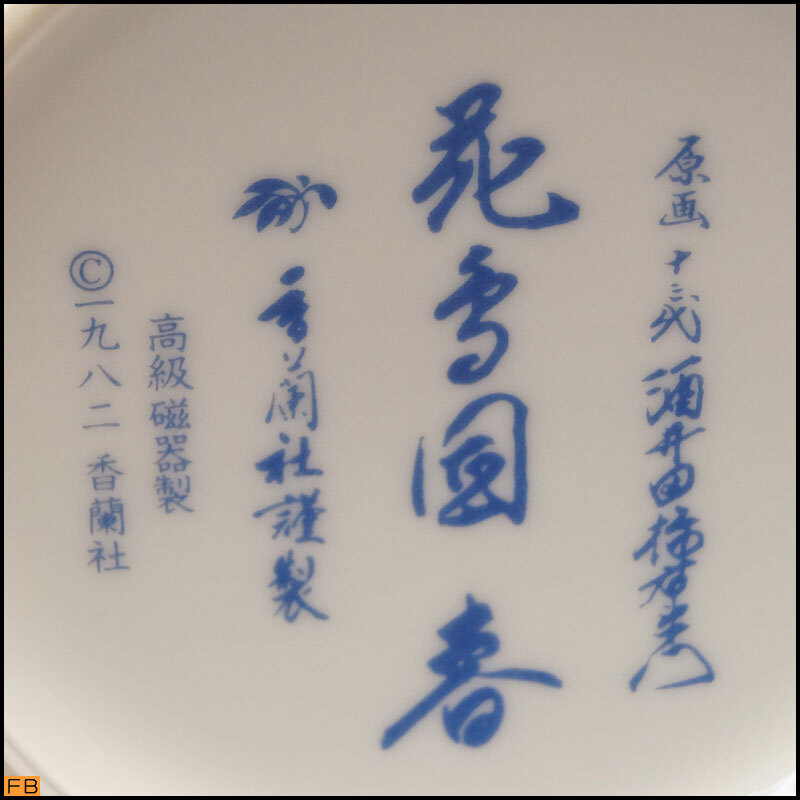 原画 十三代 酒井田柿右衛門
花鳥図 春
香蘭社謹製
高級磁器製
©一九八二 香蘭社
FB